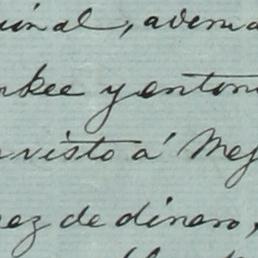 inal, adema
nkee y entonc
visto á Mej
ez de dinero,